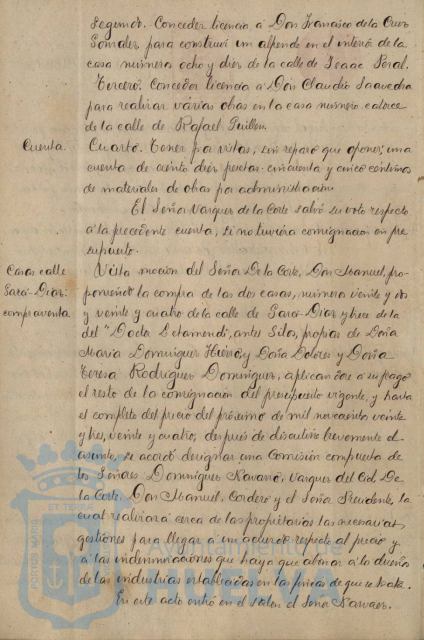 Segundo. Conceder licencia á Don Francisco de la Cruz
González para construir un alpende en el interior de la
casa número ocho y diez de la calle de Isaac Peral.
Tercero. Conceder licencia á Don Claudio Saavedra
para realizar varias obras en la casa número catorce
de la calle de Rafael Guillen.
Cuenta.
Cuarto. Tener por vistas, sin reparo que oponer, una
cuenta de ciento diez pesetas cincuenta y cinco céntimos
de materiales de obras por administración.
El Señor Vazquez de la Corte salvó su voto respecto
á la precedente cuenta, si no tuviera consignación en pre
supuesto.
Casas calle
Garci-Diaz:
compraventa
Vista moción del Señor De la Corte, Don Manuel, pro-
poniendo la compra de las dos casas, número veinte y dos
y veinte y cuatro de la calle de Garci-Diaz y trece de la
del "Doctor Letamendi", antes Silos, propias de Doña
Maria Dominguez Hierro y Doña Dolores y Doña
Teresa Rodriguez Dominguez, aplicandose a su pago
el resto de la consignación del presupuesto vigente, y hasta
el completo del precio del próximo de mil novecientos veinte
y tres, veinte y cuatro; después de discutirse brevemente el
asunto, se acordó designar una Comisión compuesta de
los Señores Dominguez Navarro, Vazquez del Cid, De
la Corte, Don Manuel, Cordero y el Señor Presidente, la
cual realizará cerca de las propietarias las necesarias
gestiones para llegar á un acuerdo respecto al precio y
á las indemnizaciones que haya que abonar á los dueños
de las industrias establecidas en las fincas de que se trata.
En este acto entró en el salón el Señor Narvaez.
PORTUS MARIS
ET TERRÆ
Ayuntamiento de
HUELVA